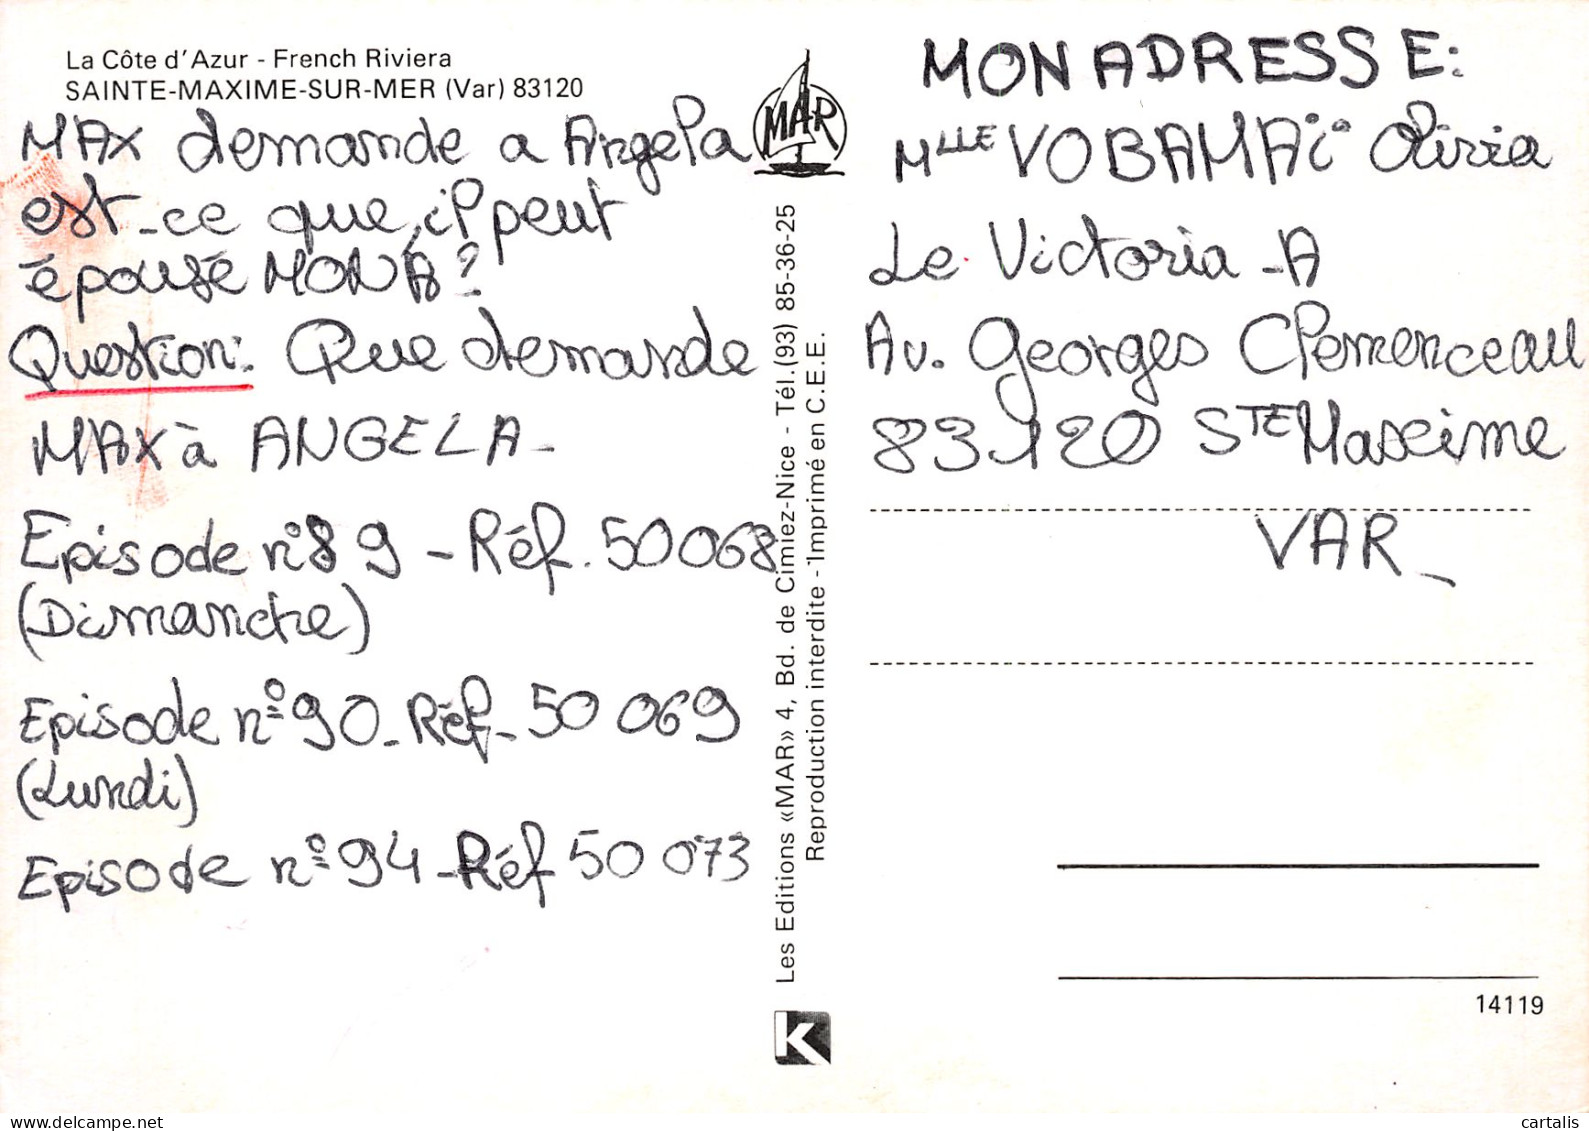 La Côte d'Azur - French Riviera
SAINTE-MAXIME-SUR-MER (Var) 83120
MAX demande a Angela
est-ce que, il peut
épousé MONA?
Question: Que demande
MAX à ANGELA-
Episode n°89 - Réf. 50068
(Dimanche)
Episode n°90 - Réf - 50 069
(Lundi)
Episode n°94 - Réf 50 073
MAR
Les Editions «MAR» 4, Bd. de Cimiez-Nice - Tél. (93) 85-36-25
Reproduction interdite - Imprimé en C.E.E.
K
MON ADRESSE:
MLLE VOBAMAï Olivia
Le Victoria - A
Av. Georges Clemenceau
83120 STE Maxime
VAR_
14119
www.delcampe.net
cartalis